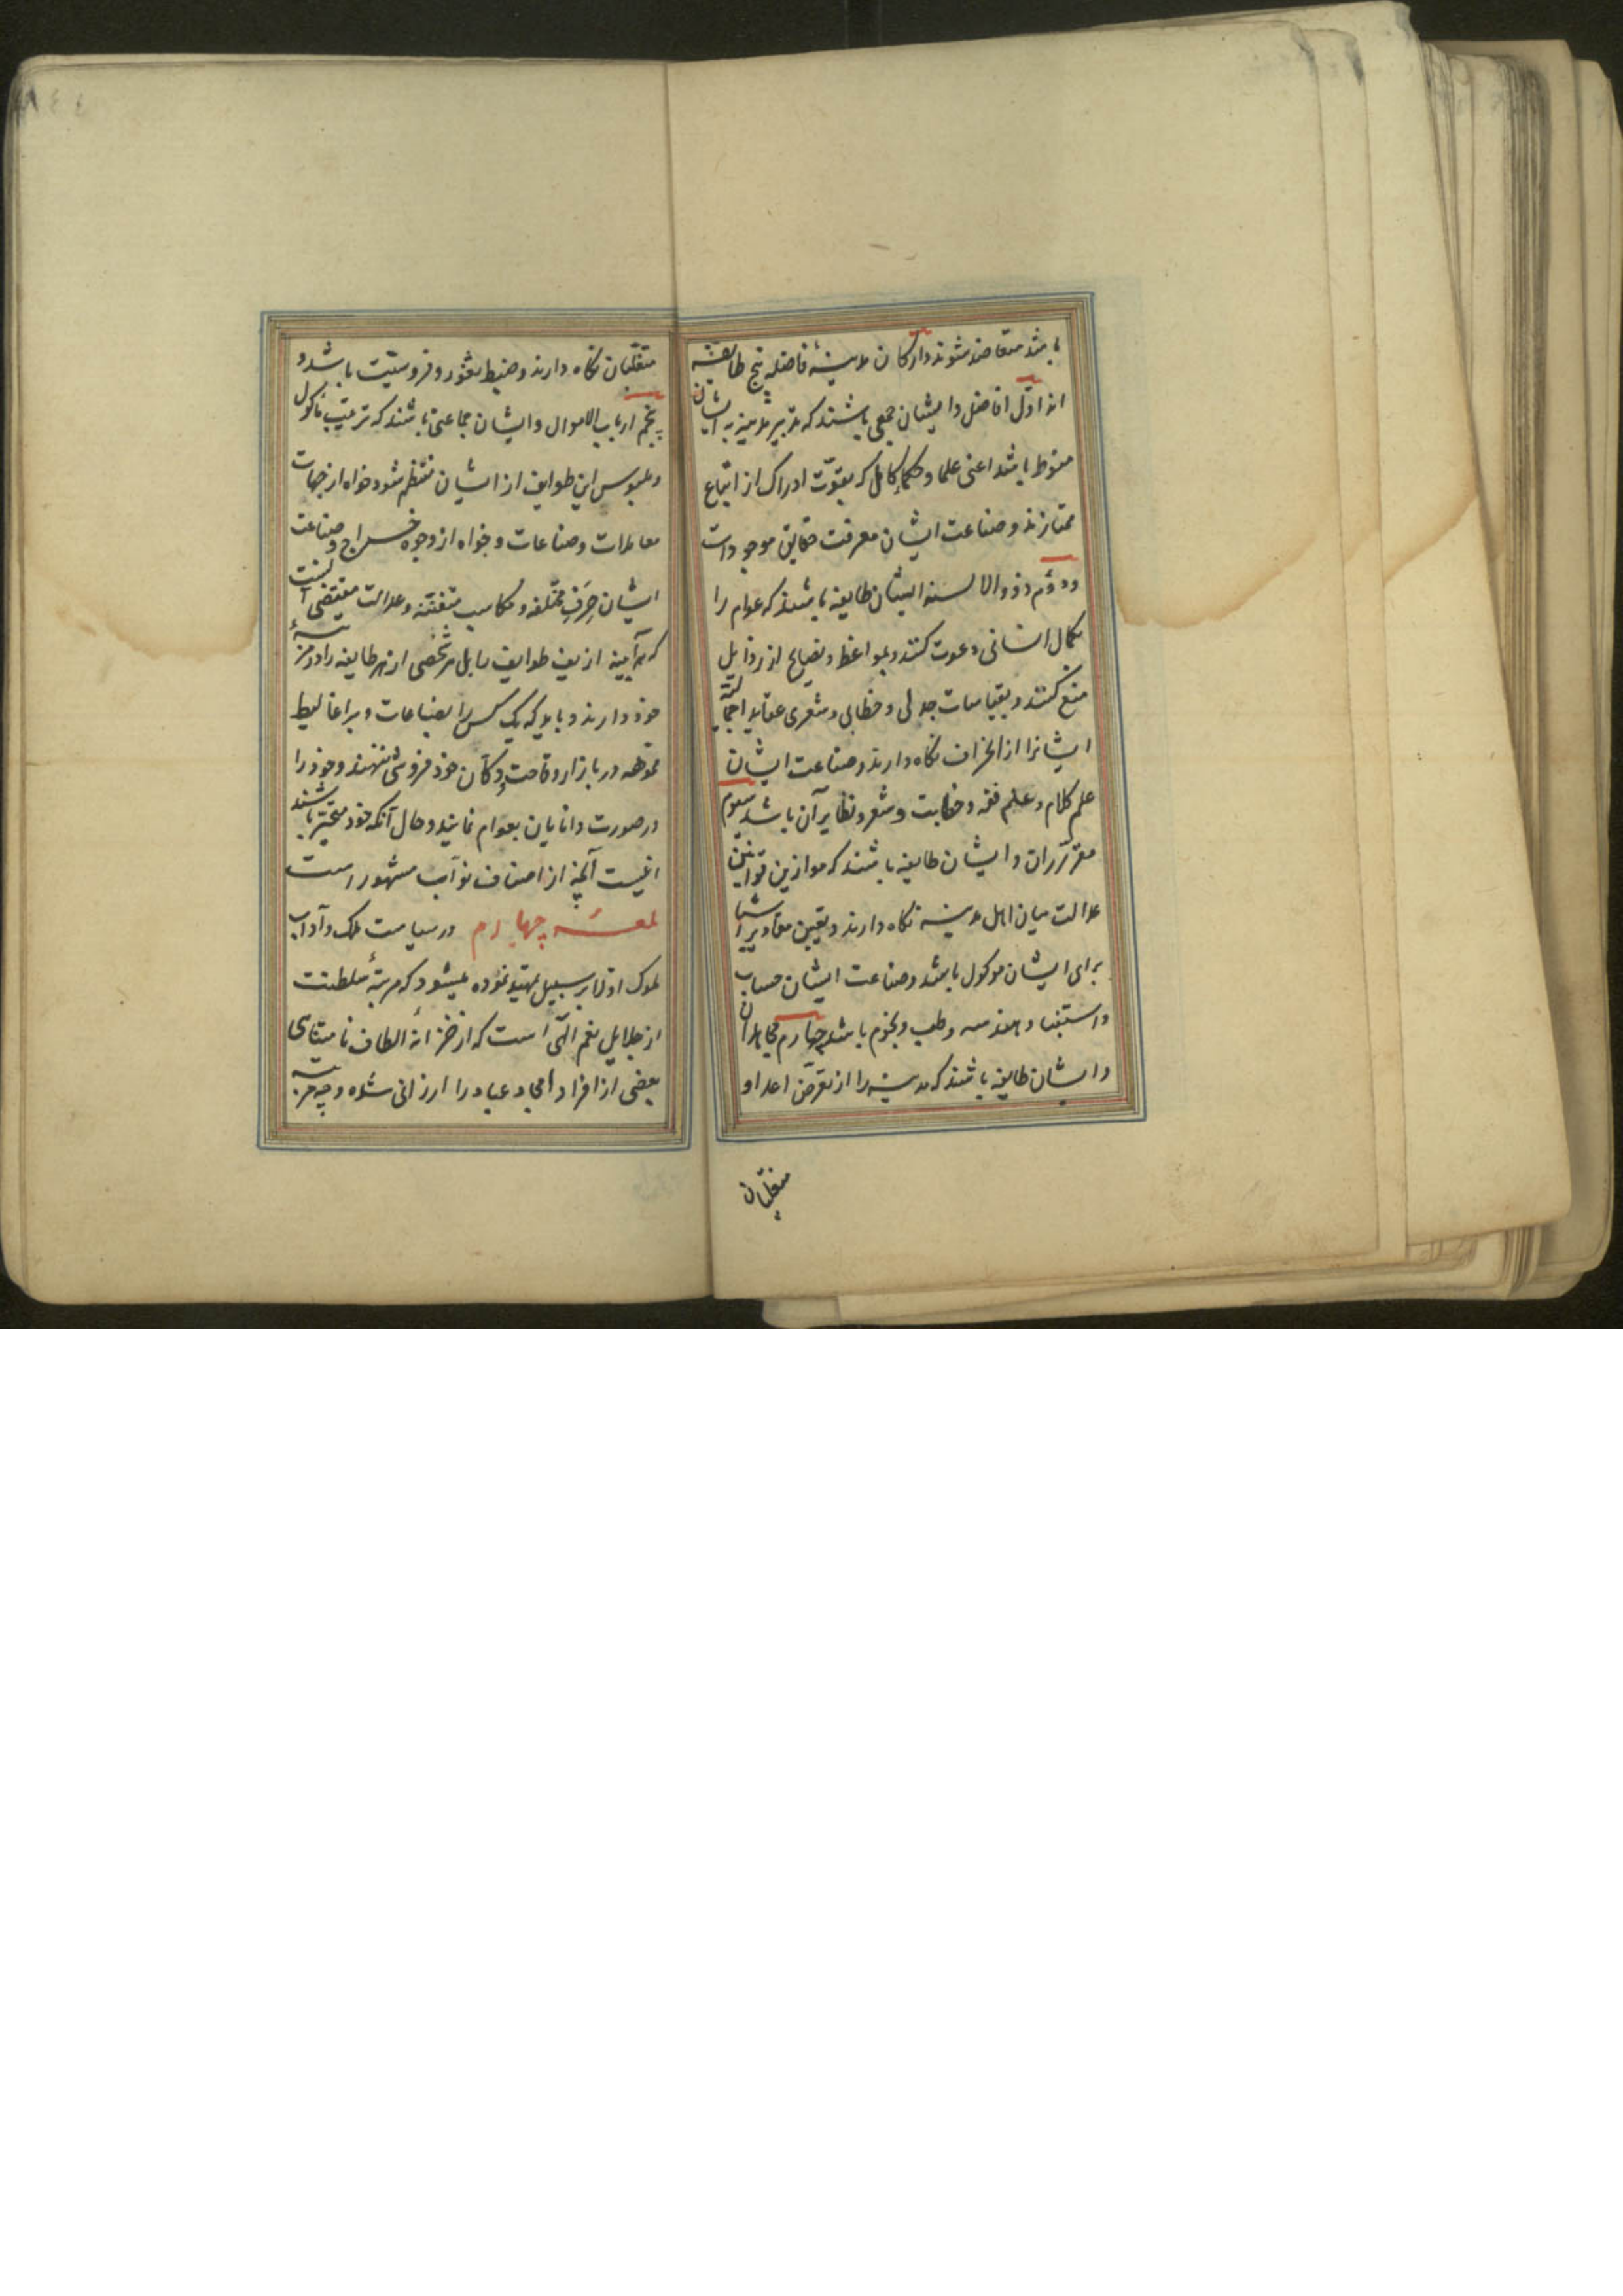 باشد متعاضد شوند و ارکان مدینهٔ فاضله پنج طایفه
اند اوّل افاضل و ایشان جمعی باشند که تدبیر مدینه به ایشان
منوط باشد اعنی علما و حکماء کامل که بقوّت ادراک از اتباع
ممتازند و صناعت ایشان معرفت حقایق موجودات
و دوّم ذوو الالسنه ایشان طایفه باشند که عوام را
بکمال انسانی دعوت کنند و بمواعظ و نصایح از رذایل
منع کنند و بقیاسات جدلی و خطابی و شعری عقاید اجمالیّه
ایشانرا از انحراف نگاه دارند و صناعت ایشان
علم کلام و علم فقه و خطابت و شعر و نظایر آن باشد سیوم
مقرّران و ایشان طایفه باشند که موازین قوانین
عدالت میان اهل مدینه نگاه دارند و تعیین مقادیر اشیا
برای ایشان موکول باشد و صناعت ایشان حساب
و استیفا و هندسه و طب و نجوم باشد چهارم مجاهدان
و ایشان طایفه باشند که مدینه را از تعرّض اعدا و
متغلّبان
متغلّبان نگاه دارند و ضبط ثغور و فروسیّت باشد و
پنجم ارباب الاموال و ایشان جماعتی باشند که ترتیب مأکول
و ملبوس این طوایف از ایشان منتظم شود خواه از جهات
معاملات و صناعات و خواه از وجوه خراج و صناعت
ایشان حِرَفِ مختلفه و مکاسب متفنّنه و عدالت مقتضی آنست
که هرآیینه ازین طوایف بل هر شخصی از هر طایفه را در مرتبهٔ
خود دارند و باید که یک کس را بضاعات و براغالیط
مموّهه در بازار وقاحت دکّان خود فروشی ننهند و خود را
در صورت دانایان بعوام نمایند و حال آنکه خود متحیّر باشند
اینست آنچه از اصناف نوآب مشهور است
لمعهٔ چهارم در سیاست ملک و آداب
ملوک اولا بر سبیل تمهید نموده میشود که مرتبهٔ سلطنت
از جلایل نعم الهی است که از خزانهٔ الطاف نامتناهی
بعضی از افراد امجاد عباد را ارزانی شده و چه مرتبه